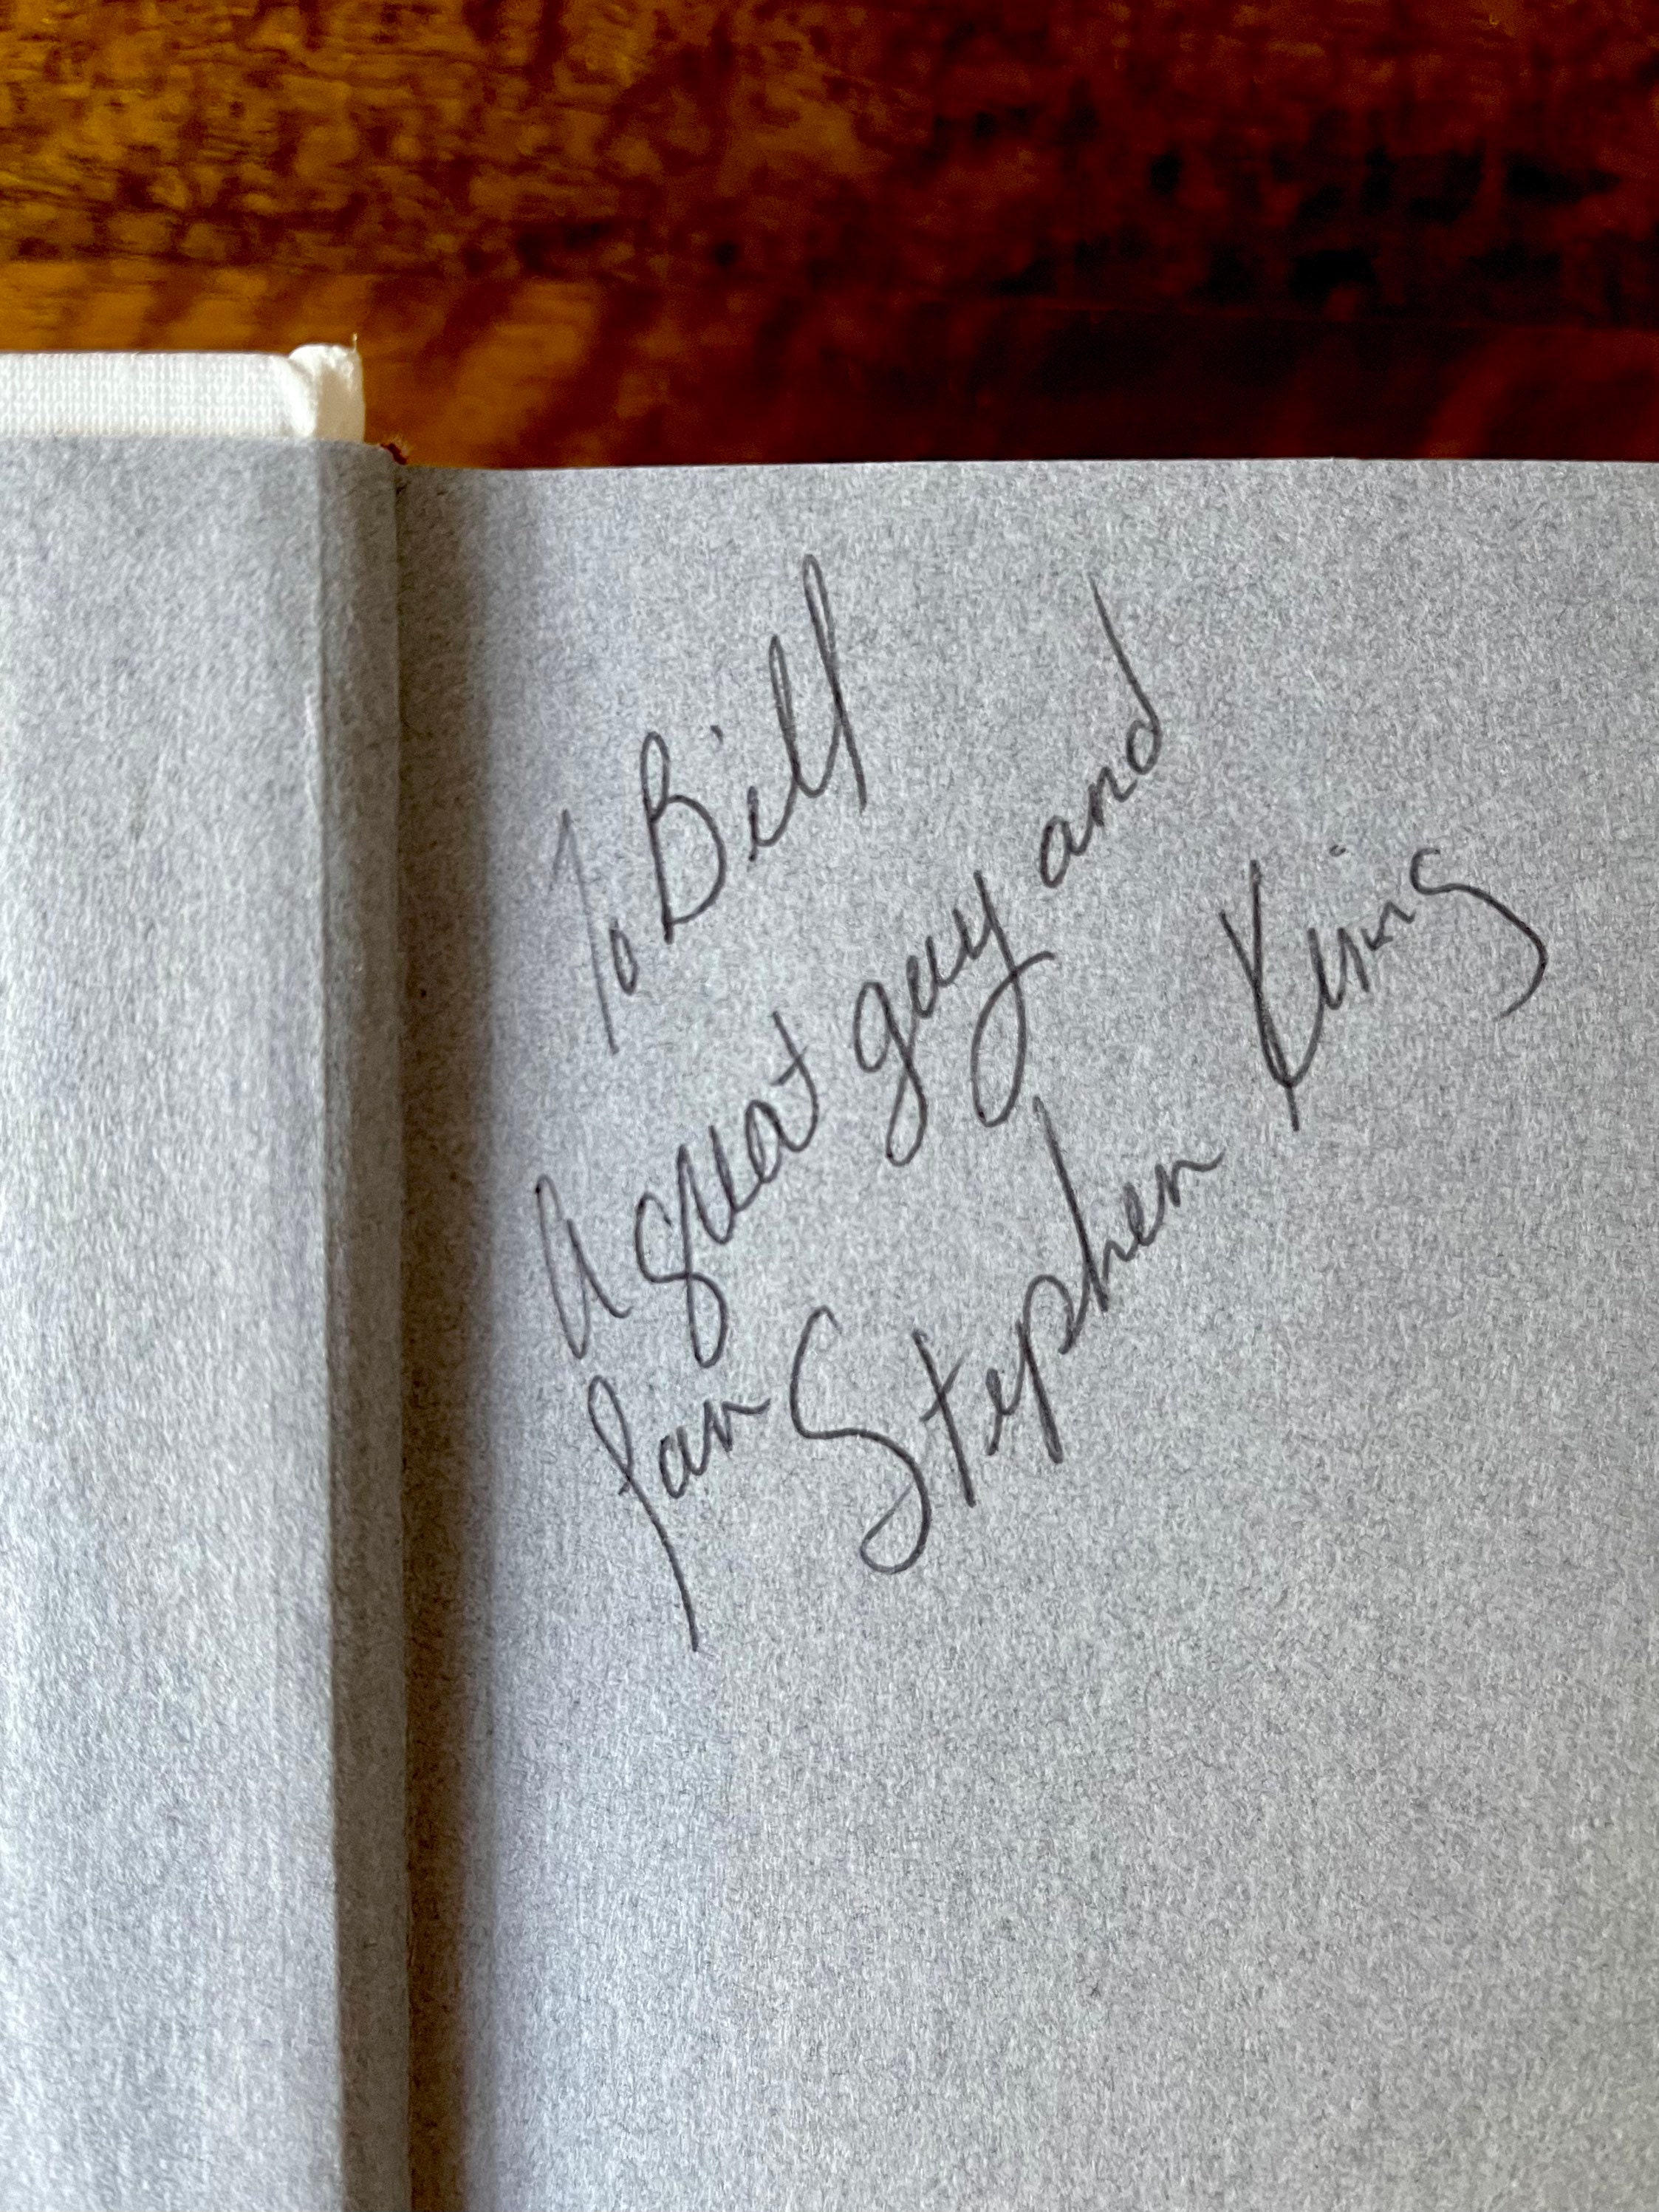 To Bill
A great guy and
fan Stephen King